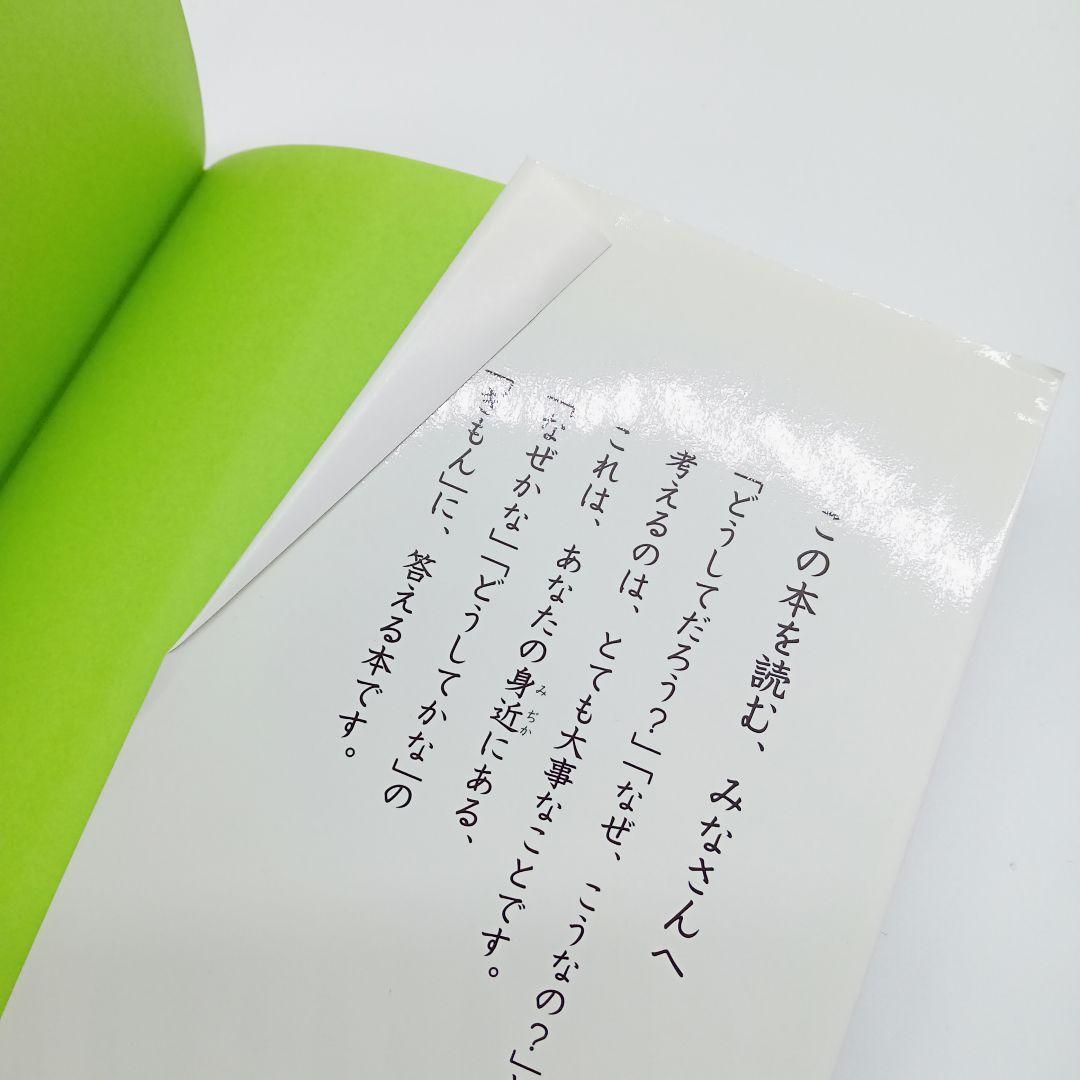 この本を読む、みなさんへ
「どうしてだろう？」「なぜ、こうなの？」と
考えるのは、とても大事なことです。
これは、あなたの身近にある、
「なぜかな」「どうしてかな」の
「ぎもん」に、答える本です。